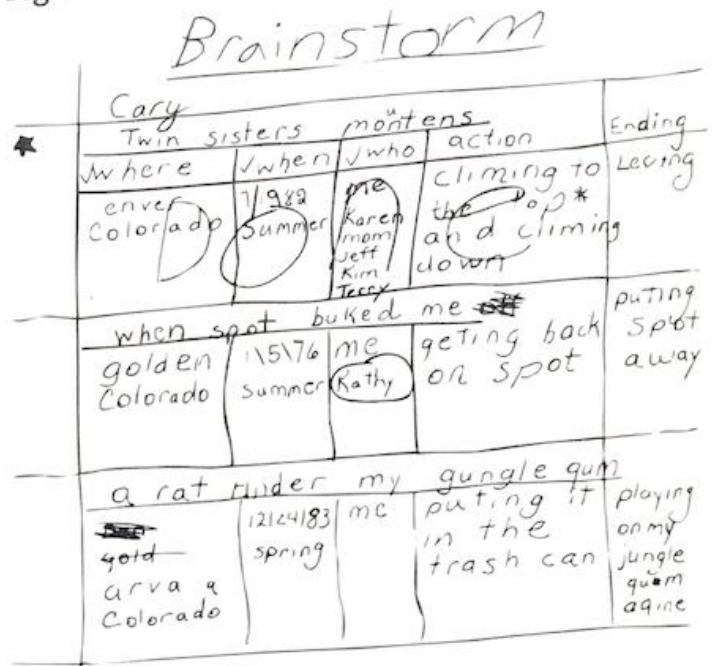 Brainstorm
Cary
Twin sisters montens
where when who action Ending
enver Colorado
7/1982 Summer
me Karen mom Jeff Kim Terry
climing to the top* and climing down
Leving
when spot buked me
golden Colorado
1\5\76 Summer
me Kathy
geting back on spot
puting spot away
a rat under my gungle qum
gold
arvaa Colorado
12/24/83 spring
me
puting it in the trash can
playing on my jungle qum agine